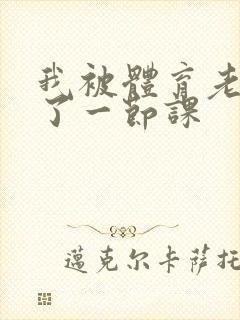 我被體育老
了一節課
邁克尔卡萨托